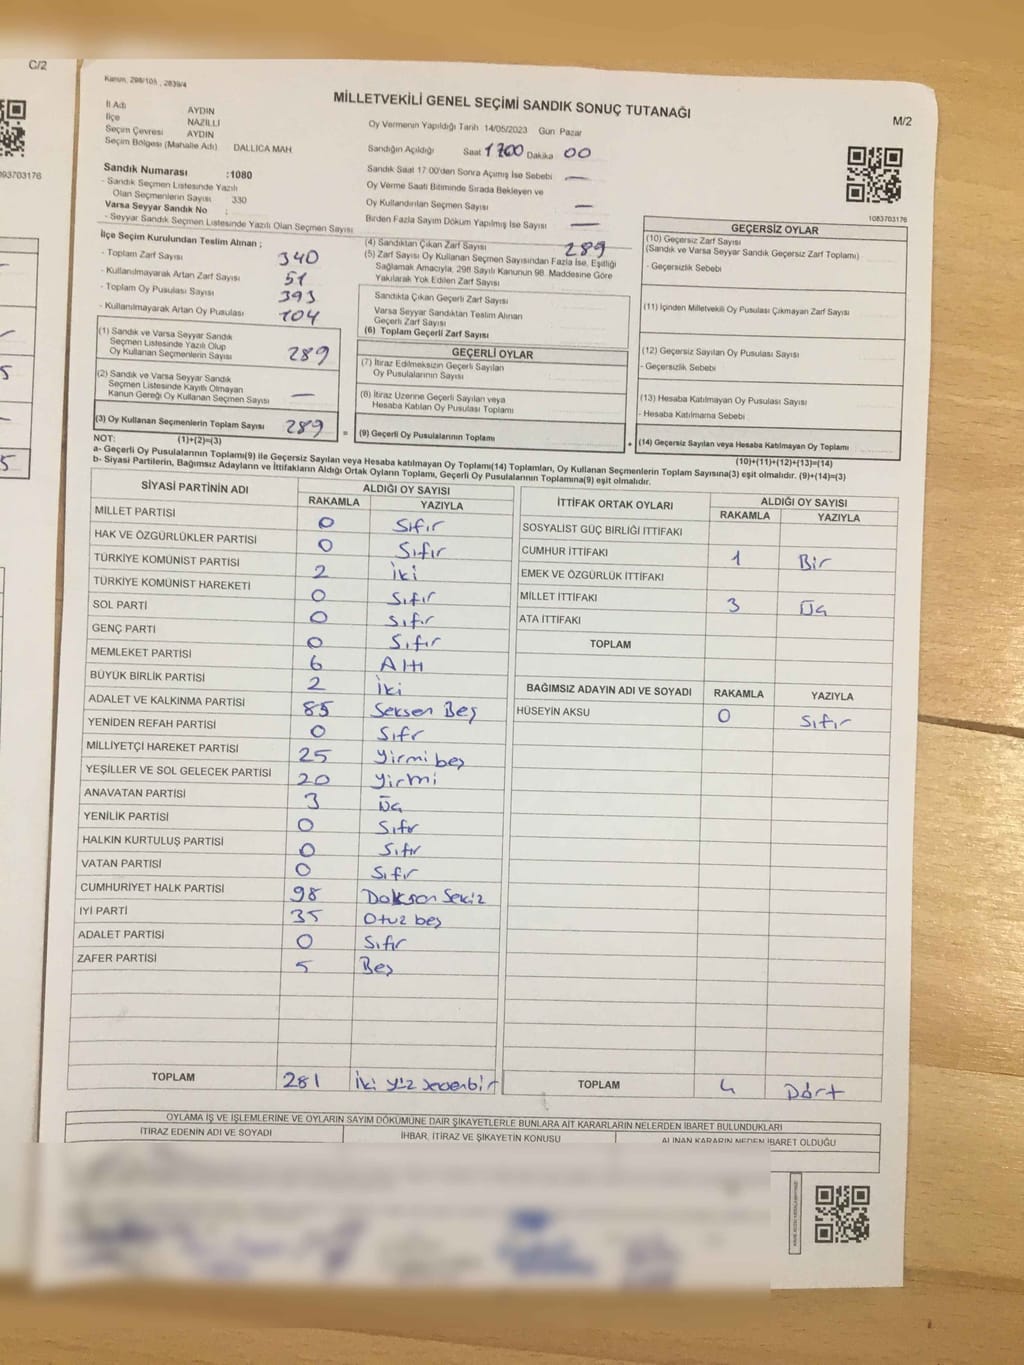 C/2
093703176
5
5
Kanun, 298/105 , 2839/4
MİLLETVEKİLİ GENEL SEÇİMİ SANDIK SONUÇ TUTANAĞI
M/2
İl Adı AYDIN
İlçe NAZİLLİ
Seçim Çevresi AYDIN
Seçim Bölgesi (Mahalle Adı) DALLICA MAH
Oy Vermenin Yapıldığı Tarih 14/05/2023 Gün Pazar
Sandığın Açıldığı Saat 1700 Dakika 00
Sandık Numarası :1080
- Sandık Seçmen Listesinde Yazılı
Olan Seçmenlerin Sayısı : 330
Varsa Seyyar Sandık No :
- Seyyar Sandık Seçmen Listesinde Yazılı Olan Seçmen Sayısı
Sandık Saat 17:00'den Sonra Açımış İse Sebebi —
Oy Verme Saati Bitiminde Sırada Bekleyen ve
Oy Kullandırılan Seçmen Sayısı —
Birden Fazla Sayım Döküm Yapılmış İse Sayısı —
1083703176
İlçe Seçim Kurulundan Teslim Alınan ;
- Toplam Zarf Sayısı 340
- Kullanılmayarak Artan Zarf Sayısı 51
- Toplam Oy Pusulası Sayısı 393
- Kullanılmayarak Artan Oy Pusulası 104
(1) Sandık ve Varsa Seyyar Sandık
Seçmen Listesinde Yazılı Olup
Oy Kullanan Seçmenlerin Sayısı 289
(2) Sandık ve Varsa Seyyar Sandık
Seçmen Listesinde Kayıtlı Olmayan
Kanun Gereği Oy Kullanan Seçmen Sayısı —
(3) Oy Kullanan Seçmenlerin Toplam Sayısı 289
(1)+(2)=(3)
(4) Sandıktan Çıkan Zarf Sayısı 289
(5) Zarf Sayısı Oy Kullanan Seçmen Sayısından Fazla İse, Eşitliği
Sağlamak Amacıyla, 298 Sayılı Kanunun 98. Maddesine Göre
Yakılarak Yok Edilen Zarf Sayısı
Sandıkta Çıkan Geçerli Zarf Sayısı
Varsa Seyyar Sandıktan Teslim Alınan
Geçerli Zarf Sayısı
(6) Toplam Geçerli Zarf Sayısı
GEÇERLİ OYLAR
(7) İtiraz Edilmeksizin Geçerli Sayılan
Oy Pusulalarının Sayısı
(8) İtiraz Üzerine Geçerli Sayılan veya
Hesaba Katılan Oy Pusulası Toplamı
= (9) Geçerli Oy Pusulalarının Toplamı
GEÇERSİZ OYLAR
(10) Geçersiz Zarf Sayısı
(Sandık ve Varsa Seyyar Sandık Geçersiz Zarf Toplamı)
- Geçersizlik Sebebi
(11) İçinden Milletvekili Oy Pusulası Çıkmayan Zarf Sayısı
(12) Geçersiz Sayılan Oy Pusulası Sayısı
- Geçersizlik Sebebi
(13) Hesaba Katılmayan Oy Pusulası Sayısı
- Hesaba Katılmama Sebebi
+ (14) Geçersiz Sayılan veya Hesaba Katılmayan Oy Toplamı
(10)+(11)+(12)+(13)=(14)
NOT:
a- Geçerli Oy Pusulası Toplamı(9) ile Geçersiz Sayılan veya Hesaba katılmayan Oy Toplamı(14) Toplamları, Oy Kullanan Seçmenlerin Toplam Sayısına(3) eşit olmalıdır. (9)+(14)=(3)
b- Siyasi Partilerin, Bağımsız Adayların ve İttifakların Aldığı Ortak Oyların Toplamı, Geçerli Oy Pusulalarının Toplamına(9) eşit olmalıdır.
SİYASİ PARTİNİN ADI ALDIĞI OY SAYISI
RAKAMLA YAZIYLA
MİLLET PARTİSİ 0 Sıfır
HAK VE ÖZGÜRLÜKLER PARTİSİ 0 Sıfır
TÜRKİYE KOMÜNİST PARTİSİ 2 İki
TÜRKİYE KOMÜNİST HAREKETİ 0 Sıfır
SOL PARTİ 0 Sıfır
GENÇ PARTİ 0 Sıfır
MEMLEKET PARTİSİ 6 Altı
BÜYÜK BİRLİK PARTİSİ 2 İki
ADALET VE KALKINMA PARTİSİ 85 Seksen Beş
YENİDEN REFAH PARTİSİ 0 Sıfır
MİLLİYETÇİ HAREKET PARTİSİ 25 Yirmi beş
YEŞİLLER VE SOL GELECEK PARTİSİ 20 Yirmi
ANAVATAN PARTİSİ 3 Üç
YENİLİK PARTİSİ 0 Sıfır
HALKIN KURTULUŞ PARTİSİ 0 Sıfır
VATAN PARTİSİ 0 Sıfır
CUMHURİYET HALK PARTİSİ 98 Doksan Sekiz
İYİ PARTİ 35 Otuz beş
ADALET PARTİSİ 0 Sıfır
ZAFER PARTİSİ 5 Beş
TOPLAM 281 İki yüz seksenbir
İTTİFAK ORTAK OYLARI ALDIĞI OY SAYISI
RAKAMLA YAZIYLA
SOSYALİST GÜÇ BİRLİĞİ İTTİFAKI
CUMHUR İTTİFAKI 1 Bir
EMEK VE ÖZGÜRLÜK İTTİFAKI
MİLLET İTTİFAKI 3 Üç
ATA İTTİFAKI
TOPLAM
BAĞIMSIZ ADAYIN ADI VE SOYADI RAKAMLA YAZIYLA
HÜSEYİN AKSU 0 Sıfır
TOPLAM 4 Dört
OYLAMA İŞ VE İŞLEMLERİNE VE OYLARIN SAYIM DÖKÜMÜNE DAİR ŞİKAYETLERLE BUNLARA AİT KARARLARIN NELERDEN İBARET BULUNDUKLARI
İTİRAZ EDENİN ADI VE SOYADI İHBAR, İTİRAZ VE ŞİKAYETİN KONUSU ALINAN KARARIN NEDEN İBARET OLDUĞU